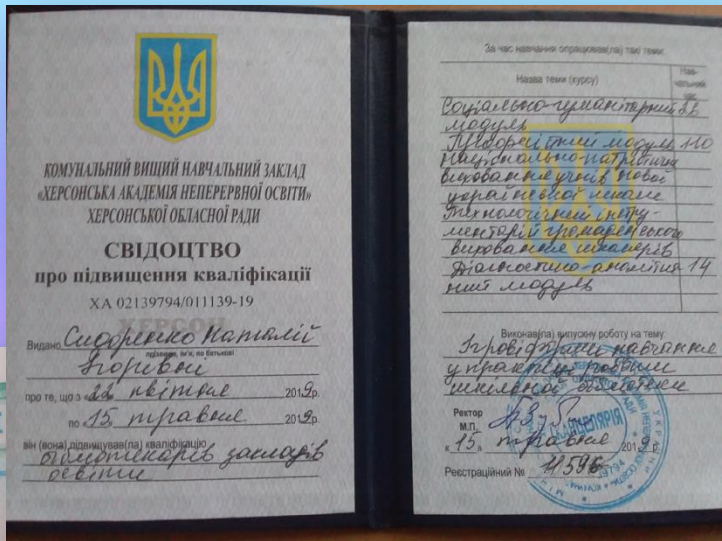 КОМУНАЛЬНИЙ ВИЩИЙ НАВЧАЛЬНИЙ ЗАКЛАД
«ХЕРСОНСЬКА АКАДЕМІЯ НЕПЕРЕРВНОЇ ОСВІТИ»
ХЕРСОНСЬКОЇ ОБЛАСНОЇ РАДИ
СВІДОЦТВО
про підвищення кваліфікації
ХА 02139794/011139-19
ХЕРСОН
Видано Сидоренко Наталії
прізвище, ім'я, по батькові
Ігорівні
про те, що з «22 квітня 2019р.
по «15 травня 2019р.
він (вона) підвищував(ла) кваліфікацію
бібліотекарів закладів
освіти
За час навчання опрацював(ла) такі теми:
Назва теми (курсу)
Нав-
чальний
час
Соціально-гуманітарний 26
модуль
модуль 110
Національно-патріотичне
виховання учнів нової
української школи
Технологічний інстру-
ментарій громадянського
виховання школярів
Діагностико-аналітич 14
ний модуль
Виконав(ла) випускну роботу на тему
Ігрові форми навчання
у практику роботи
шкільної бібліотеки
Ректор
М.П.
КАНЦЕЛЯРІЯ
УКРАЇНИ
«15» травня 2019р.
Реєстраційний № 11596